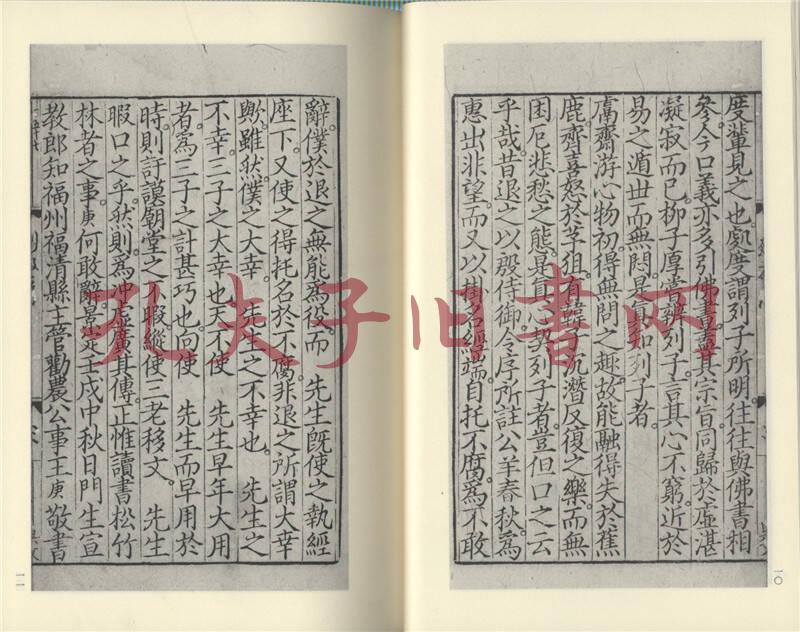 度輩見之也處度謂列子所明往往與佛書相
參今口義亦多引佛書其宗旨同歸於虛湛
凝寂而已柳子厚嘗辨列子言其心不窮近於
易之遁世而無悶是真知列子者
鬳齋游心物初得無閡之趣故能融得失於蕉
鹿齊喜怒於芧狙有韓子沉潛反復之樂而無
困厄悲愁之態是真心契列子者豈但口之云
乎哉昔退之以殷侍御令序所註公羊春秋為
惠出非望而又以掛名經端自托不腐為不敢
一〇
辭僕於退之無能為役而 先生既使之執經
座下又使之得托名於不腐非退之所謂大幸
歟雖然僕之大幸 先生之不幸也 先生之
不幸三子之大幸也天不使 先生早年大用
者為三子之計甚巧也向使 先生而早用於
時則訏謨廟堂之不暇縱使三老移文 先生
暇口之乎然則為沖虛廣其傳正惟讀書松竹
林者之事庚何敢辭景定壬戌中秋日門生宣
教郎知福州福清縣主管勸農公事王庚敬書
一一
孔夫子旧书网